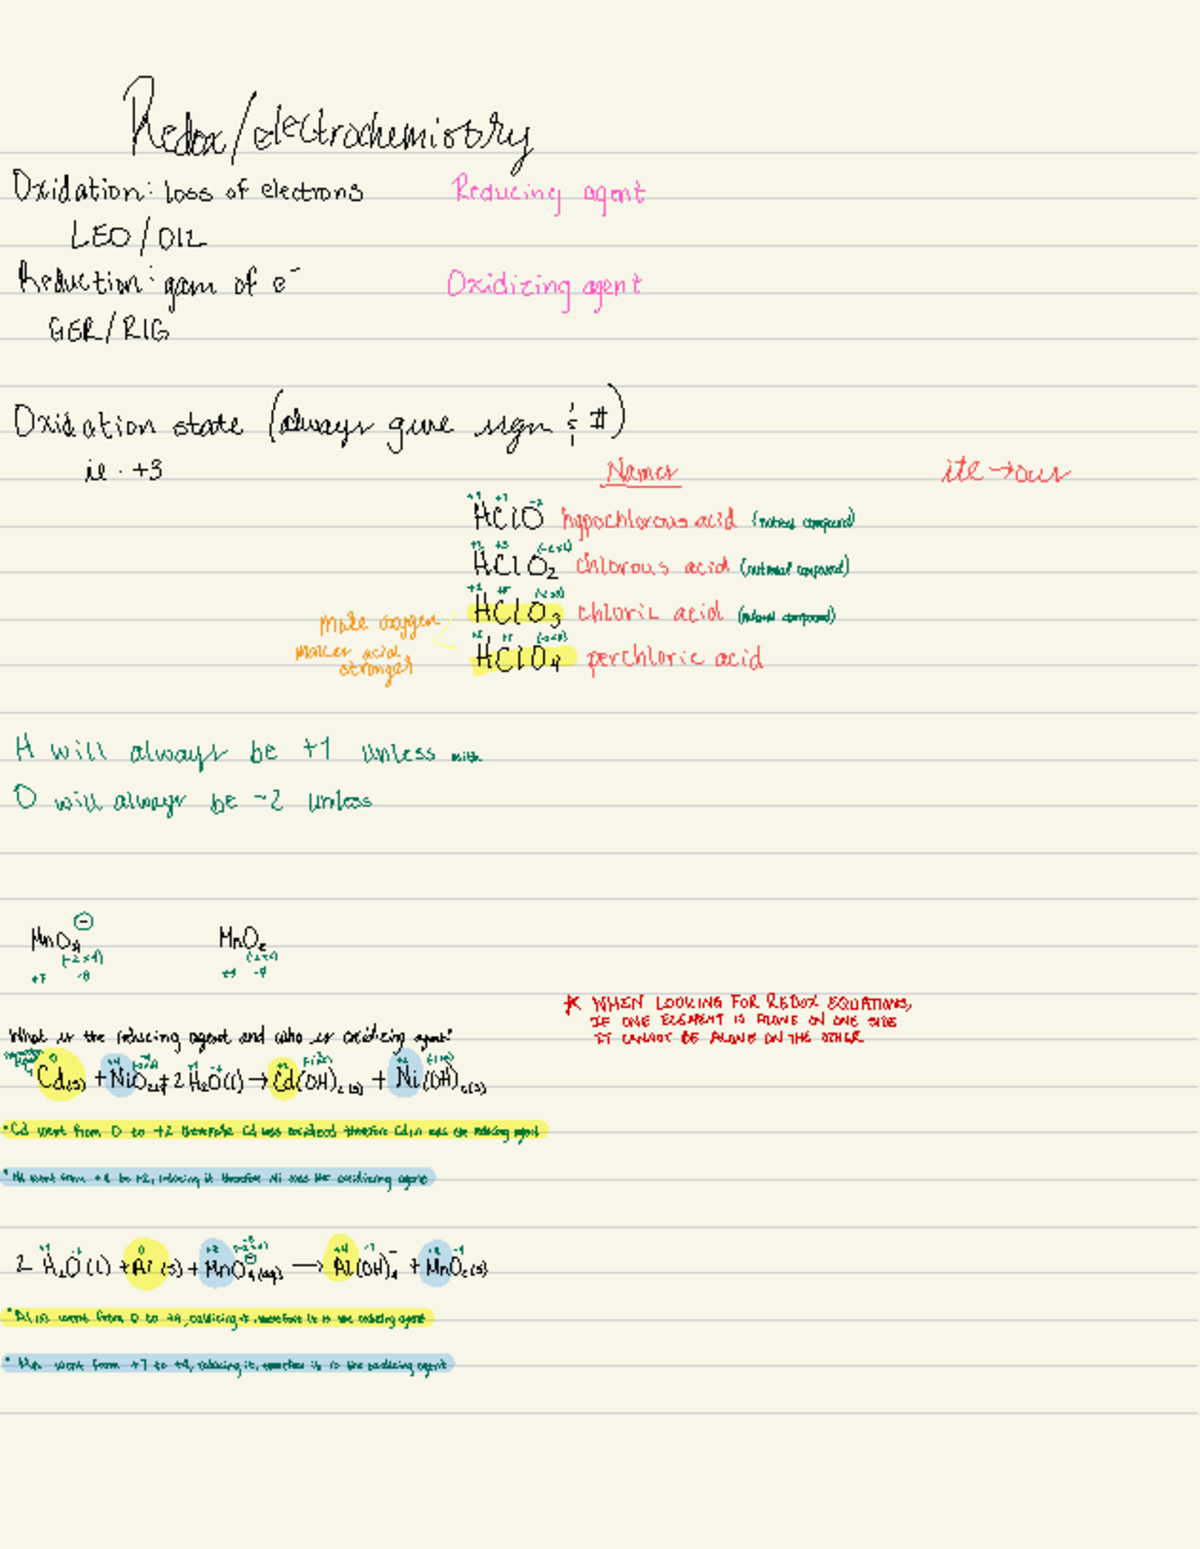 Redox/electrochemistry
Oxidation: loss of electrons Reducing agent
LEO/OIL
Reduction: gain of e⁻ Oxidizing agent
GER/RIG
Oxidation state (always give sign & #)
ie. +3
Names ite → ous
HClO hypochlorous acid (neutral compound)
HClO₂ chlorous acid (neutral compound)
HClO₃ chloric acid (neutral compound)
More oxygen
makes acid
stronger
HClO₄ perchloric acid
H will always be +1 unless with
O will always be -2 unless
MnO₄⊖ MnO₂
(-2×4) (-2×2)
+7 -8 +4 -4
* WHEN LOOKING FOR REDOX EQUATIONS,
IF ONE ELEMENT IS ALONE ON ONE SIDE
IT CANNOT BE ALONE ON THE OTHER
What is the reducing agent and who is oxidizing agent?
Cd(s) + NiO₂(s) + 2H₂O(l) → Cd(OH)₂(s) + Ni(OH)₂(s)
• Cd went from 0 to +2 therefore Cd was oxidized therefore Cd(s) was the reducing agent
• Ni went from +4 to +2, reducing it therefore Ni was the oxidizing agent
2 H₂O(l) + Al(s) + MnO₄⊖(aq) → Al(OH)₄⁻ + MnO₂(s)
• Al(s) went from 0 to +4, oxidizing it, therefore it is the reducing agent
• Mn went from +7 to +4, reducing it, it is the oxidizing agent